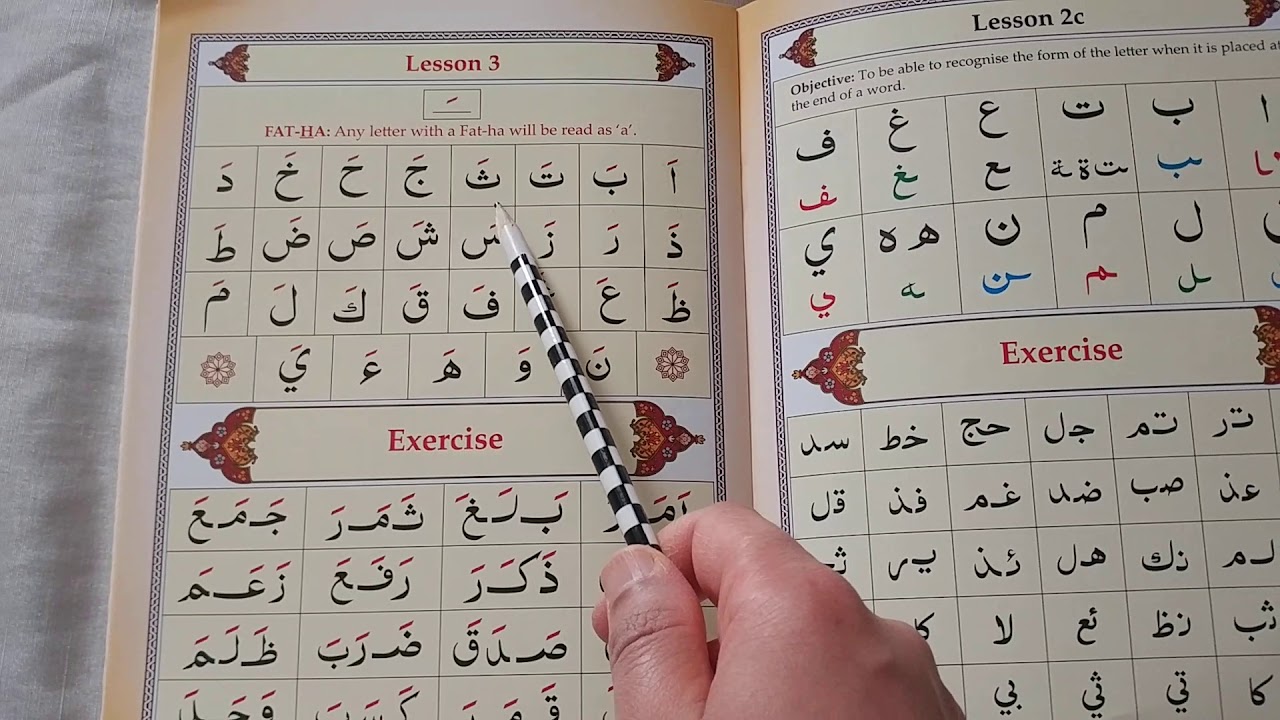 Lesson 2c
Objective: To be able to recognise the form of the letter when it is placed at
the end of a word.
ا ب ت ع غ ف
ـا ـب ـت ـة ة ـع ـغ ـف
ل م ن ه ه ي
ـل ـم ـن ـه ـي
Exercise
تر تم جل حج خط سد
عذ صب ضد غم فذ قل
لم نك هل ئذ ير
ثب نظ ئع لا
كا تي ثي بي
Lesson 3
ــَـ
FAT-HA: Any letter with a Fat-ha will be read as ‘a’.
اَ بَ تَ ثَ جَ حَ خَ دَ
ذَ رَ زَ سَ شَ صَ ضَ طَ
ظَ عَ فَ قَ كَ لَ مَ
نَ وَ هَ ءَ يَ
Exercise
بَلَغَ ثَمَرَ جَمَعَ
ذَكَرَ رَفَعَ زَعَمَ
صَدَقَ ضَرَبَ ظَلَمَ